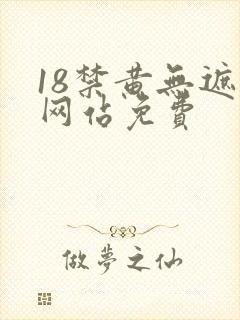 18禁黄無遮
网佔免費
做夢之仙